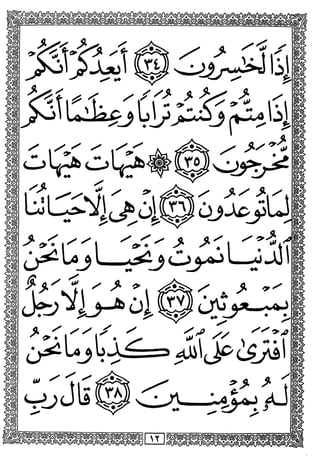 إِذًا لَّخَٰسِرُونَ ٣٤ أَيَعِدُكُمْ أَنَّكُمْ
إِذَا مِتُّمْ وَكُنتُمْ تُرَابًا وَعِظَٰمًا أَنَّكُم
مُّخْرَجُونَ ٣٥ ۞ هَيْهَاتَ هَيْهَاتَ
لِمَا تُوعَدُونَ ٣٦ إِنْ هِيَ إِلَّا حَيَاتُنَا
ٱلدُّنْيَا نَمُوتُ وَنَحْيَا وَمَا نَحْنُ
بِمَبْعُوثِينَ ٣٧ إِنْ هُوَ إِلَّا رَجُلٌ
ٱفْتَرَىٰ عَلَى ٱللَّهِ كَذِبًا وَمَا نَحْنُ
لَهُۥ بِمُؤْمِنِينَ ٣٨ قَالَ رَبِّ
١٢